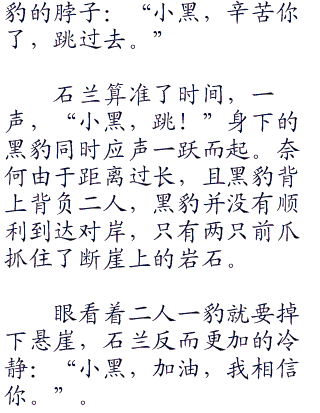 豹的脖子：“小黑，辛苦你
了，跳过去。”
石兰算准了时间，一
声，“小黑，跳！”身下的
黑豹同时应声一跃而起。奈
何由于距离过长，且黑豹背
上背负二人，黑豹并没有顺
利到达对岸，只有两只前爪
抓住了断崖上的岩石。
眼看着二人一豹就要掉
下悬崖，石兰反而更加的冷
静：“小黑，加油，我相信
你。”。